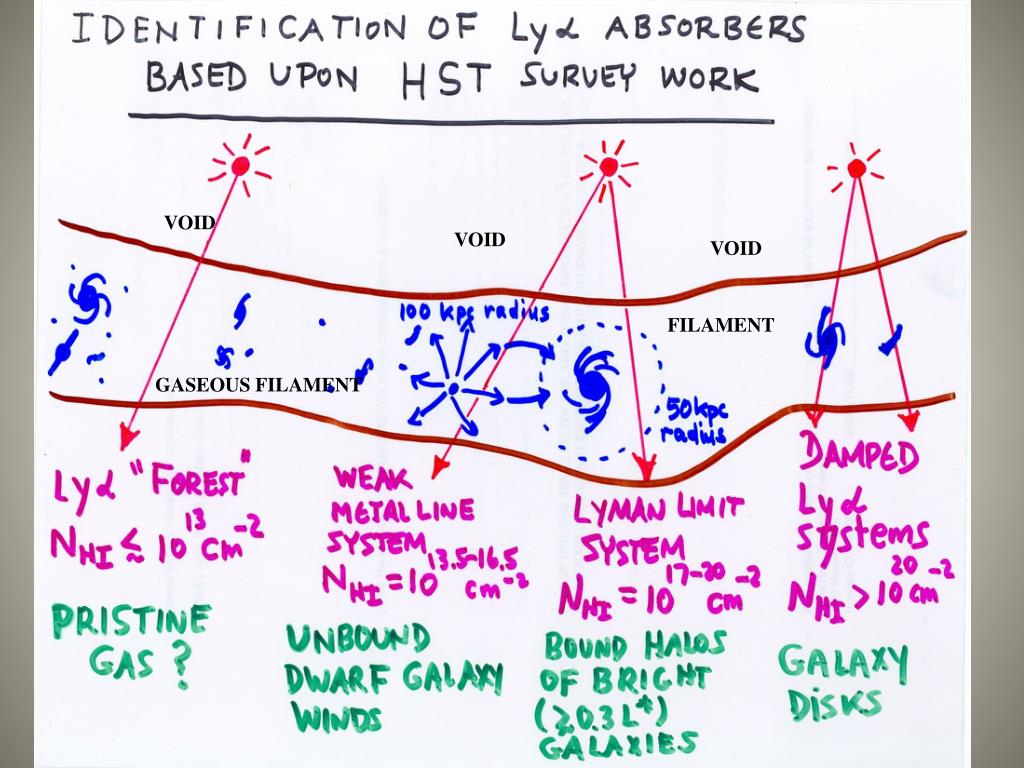 IDENTIFICATION OF Lyα ABSORBERS
BASED UPON HST SURVEY WORK
VOID
VOID
VOID
100 kpc radius
FILAMENT
GASEOUS FILAMENT
50 kpc
radius
Lyα "FOREST"
N_HI ≲ 10^13 cm^-2
PRISTINE
GAS ?
WEAK
METAL LINE
SYSTEM
N_HI = 10^13.5-16.5 cm^-2
UNBOUND
DWARF GALAXY
WINDS
LYMAN LIMIT
SYSTEM
N_HI = 10^17-20 cm^-2
BOUND HALOS
OF BRIGHT
(≳0.3 L*)
GALAXIES
DAMPED
Lyα
systems
N_HI > 10^20 cm^-2
GALAXY
DISKS